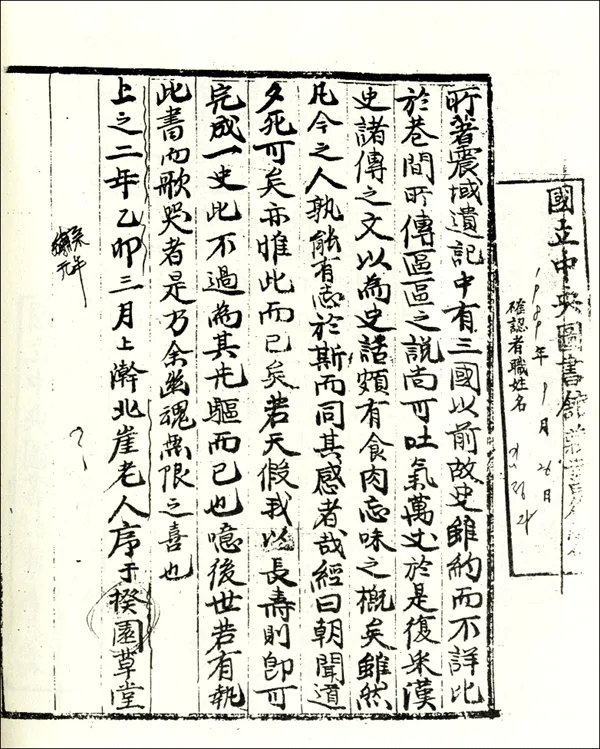 所著震域遺記中有三國以前故史雖約而不詳比
於巷間所傳區區之說尚可吐氣萬丈於是復采漢
史諸傳之文以為史話頗有食肉忘味之概矣雖然
凡今之人孰能有志於斯而同其感者哉經曰朝聞道
夕死可矣亦惟此而已矣若天假我以長壽則卽可
完成一史此不過為其先驅而已也噫後世若有執
此書而歌哭者是乃余幽魂無限之喜也
上之二年乙卯三月上澣北崖老人序于揆園草堂
肅宗
元年
國立中央圖書館
1989年 1月 26日
確認者職姓名